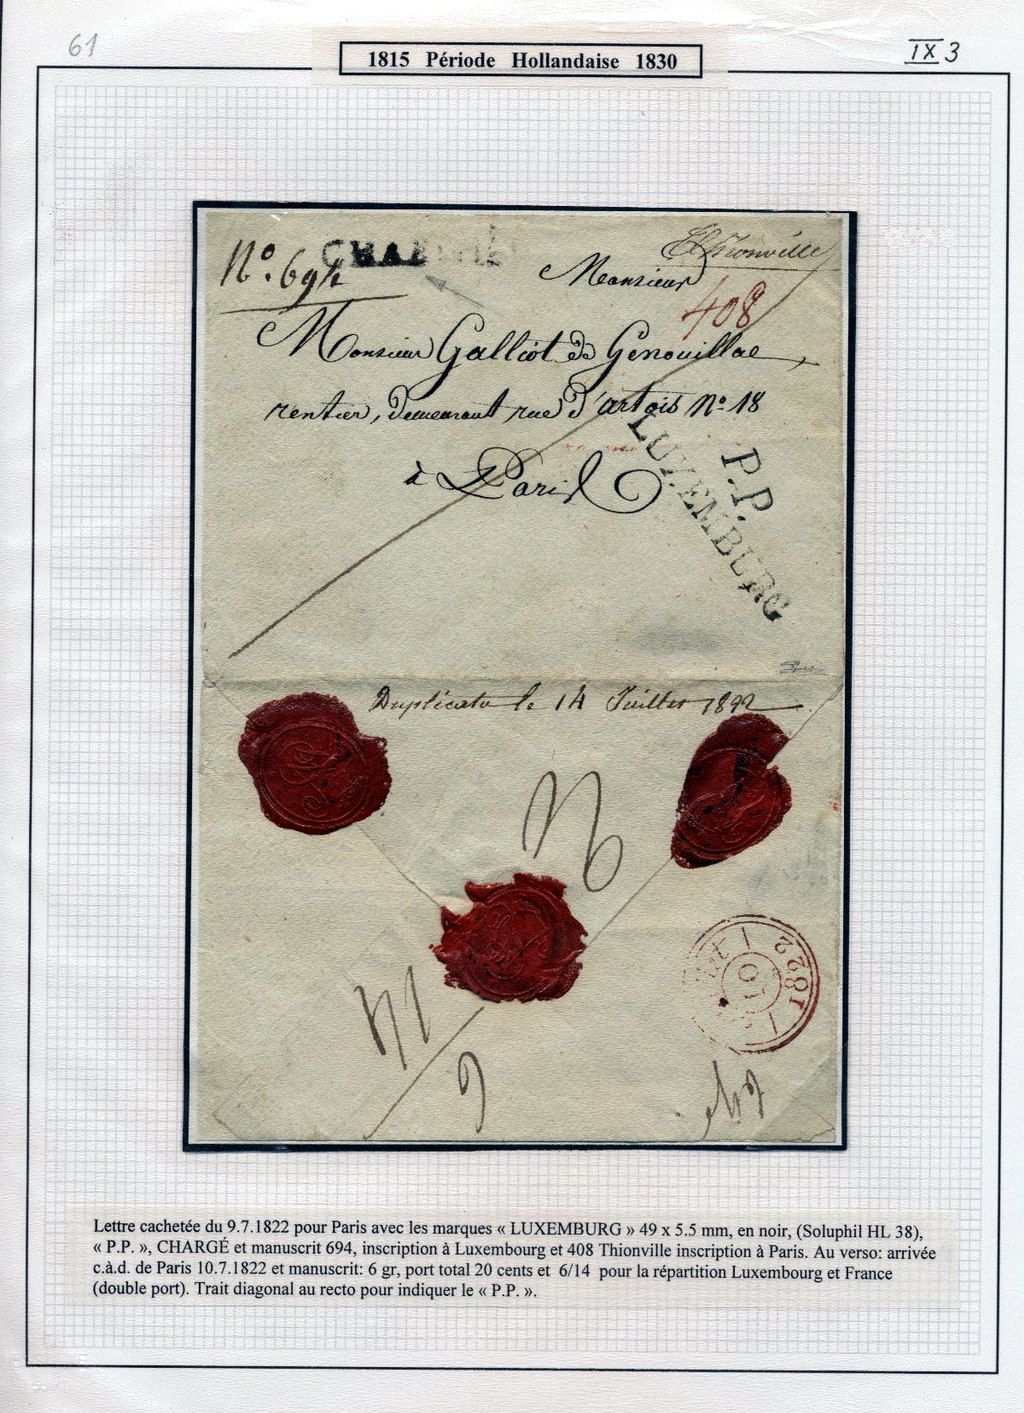 61
1815 Période Hollandaise 1830
IX 3
CHARGÉ
Nº. 694
Thionville
Monsieur
408
Monsieur Galliot de Genouillac
rentier, demeurant rue d'artois Nº 18
à Paris
P.P.
LUXEMBURG
Duplicata le 14 Juillet 1822
1822
10
6
Lettre cachetée du 9.7.1822 pour Paris avec les marques « LUXEMBURG » 49 x 5.5 mm, en noir, (Soluphil HL 38),
« P.P. », CHARGÉ et manuscrit 694, inscription à Luxembourg et 408 Thionville inscription à Paris. Au verso: arrivée
c.à.d. de Paris 10.7.1822 et manuscrit: 6 gr, port total 20 cents et 6/14 pour la répartition Luxembourg et France
(double port). Trait diagonal au recto pour indiquer le « P.P. ».